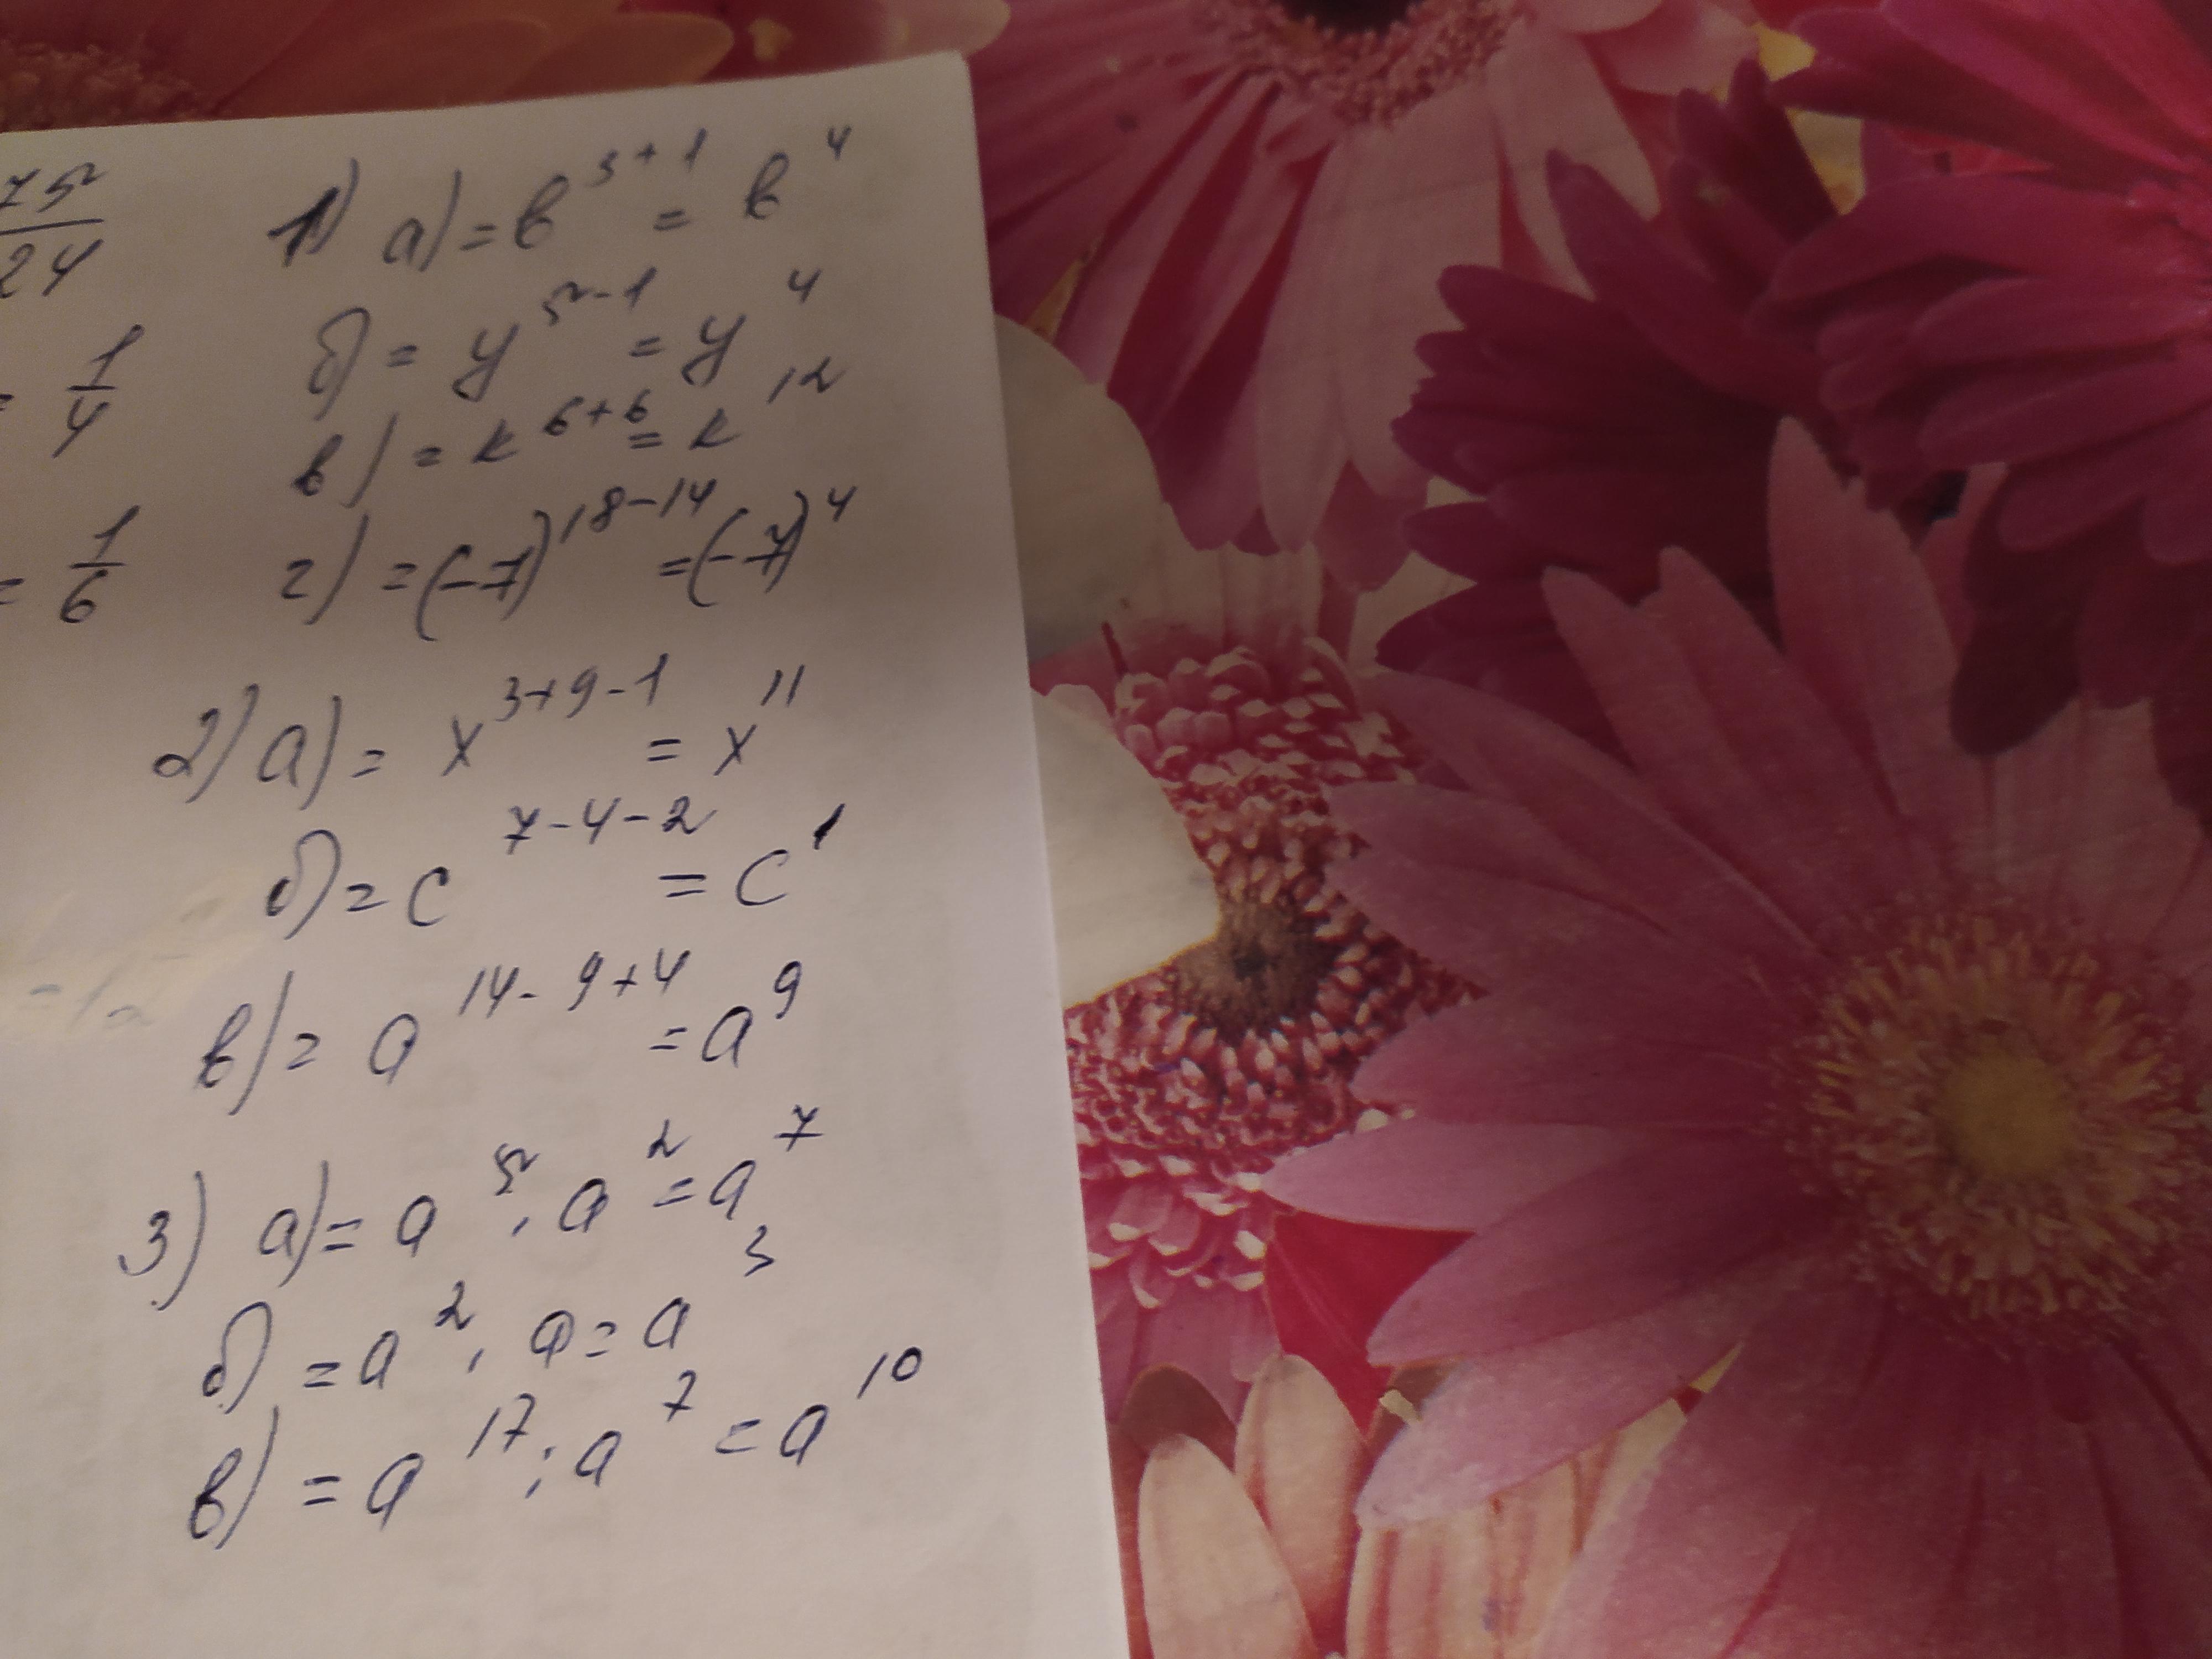 75/24
1) а) = в^3+1 = в^4
б) = у^5-1 = у^4
= 1/4
в) = к^6+6 = к^12
г) = (-7)^18-14 = (-7)^4
= 1/6
2) а) = x^3+9-1 = x^11
б) = c^7-4-2 = c^1
в) = a^14-9+4 = a^9
3) а) = a^5 · a^2 = a^7
б) = a^2 · a = a^3
в) = a^17 : a^7 = a^10